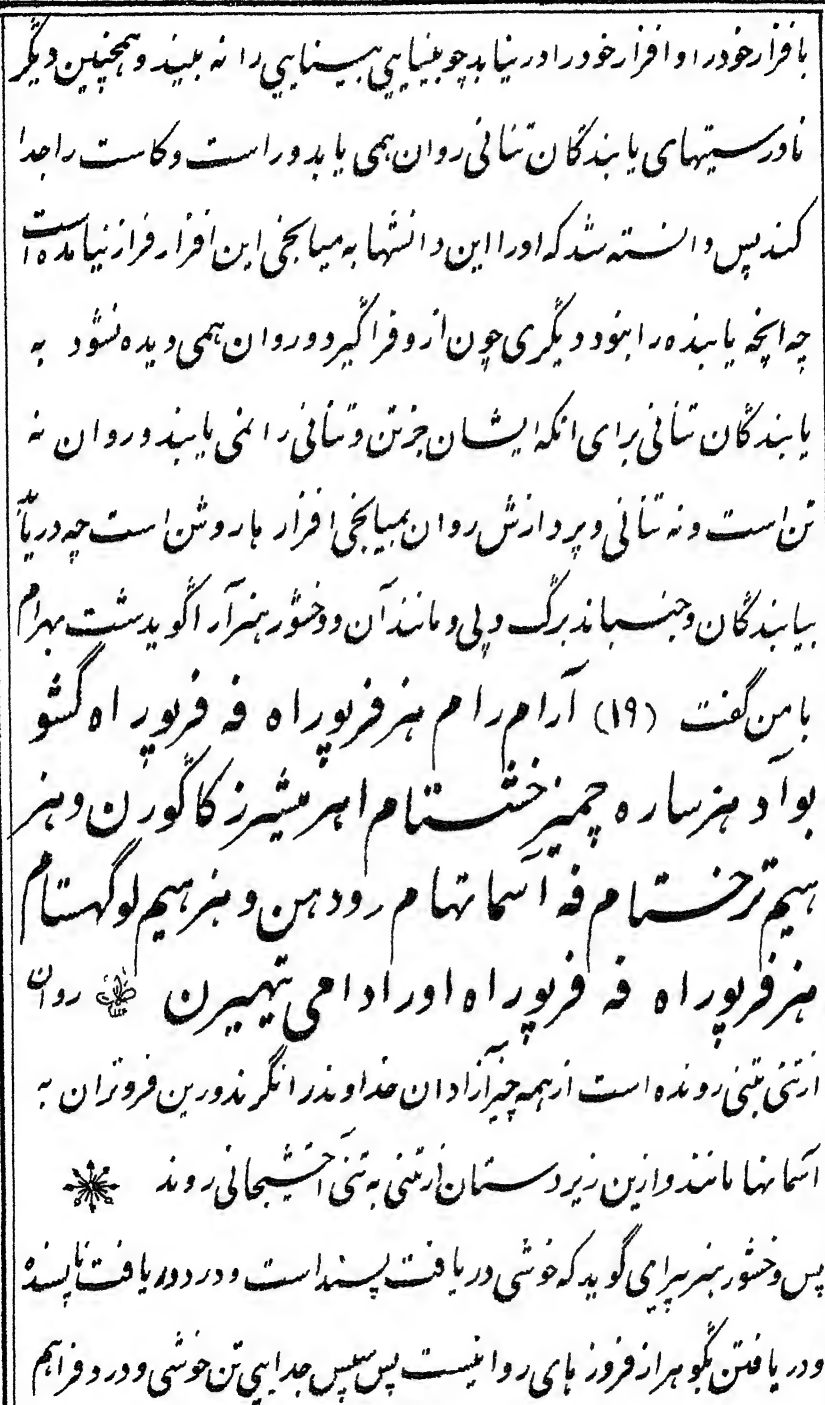 بافزار خود را و افزار خود را در نیابد چو بینایی بینایی را نه بیند و همچنین دیگر
نادرستیهای یابندگان تنانی روان همی یابد و راست و کاست را جدا
کند پس دانسته شد که او را این دانشها به میانجی این افزار فراز نیامده است
چه انچه یابنده را بنود دیگری چون ازو فراگیرد و روان همی دیده نشود به
یابندگان تنانی برای انکه ایشان جز تن و تنانی را نمی یابند و روان نه
تن است و نه تنانی و پردازش روان بمیانجی افزار ها روشن است چه دریابد
بیابندگان و جنباند برگ و پی و مانند آن و وخشور هنر آرا گوید شت بهرام
بامن گفت (۱۹) آرام رام هنر فرپوراه فه فرپوراه گشو
بواد هنر ساره چمیز خشتام اهر میشرز کاگورن و هنر
هیم ترخستام فه آسمانهام رودهن و هنر هیم لوگهستام
هنر فرپوراه فه فرپوراه اورادامی یتهیرن روان
ازتنی بتنی رونده است از همه چیز آزادان خداوند را نگرند و رین فروتران به
آسمانها مانند و ازین زیردستان ازتنی به تنی آخشیجانی روند
پس وخشور هنر پیرای گوید که خوشی دریافت پسند است و درد دریافت ناپسند
و دریافتن بگوهر از فروزهای روانیست پس سپس جدایی تن خوشی و درد فراهم